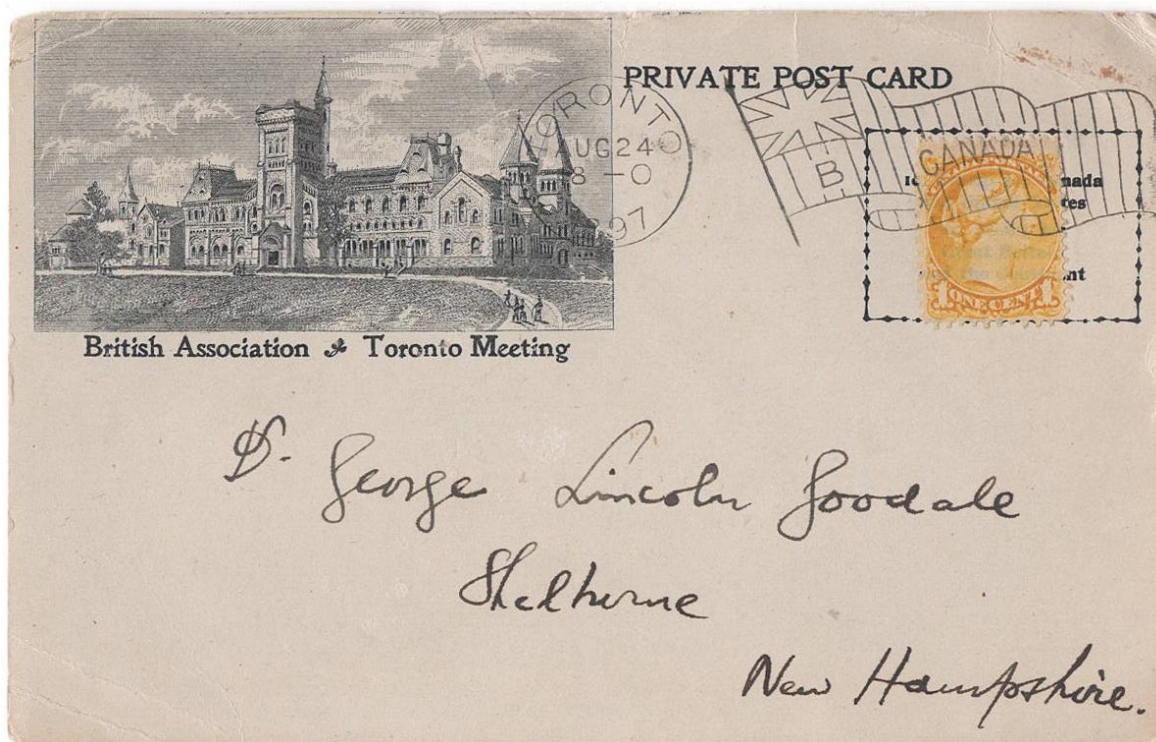 PRIVATE POST CARD
TORONTO
AUG 24
8 - 0
97
B
CANADA
ONE CENT
British Association Toronto Meeting
D. George Lincoln Goodale
Shelburne
New Hampshire.